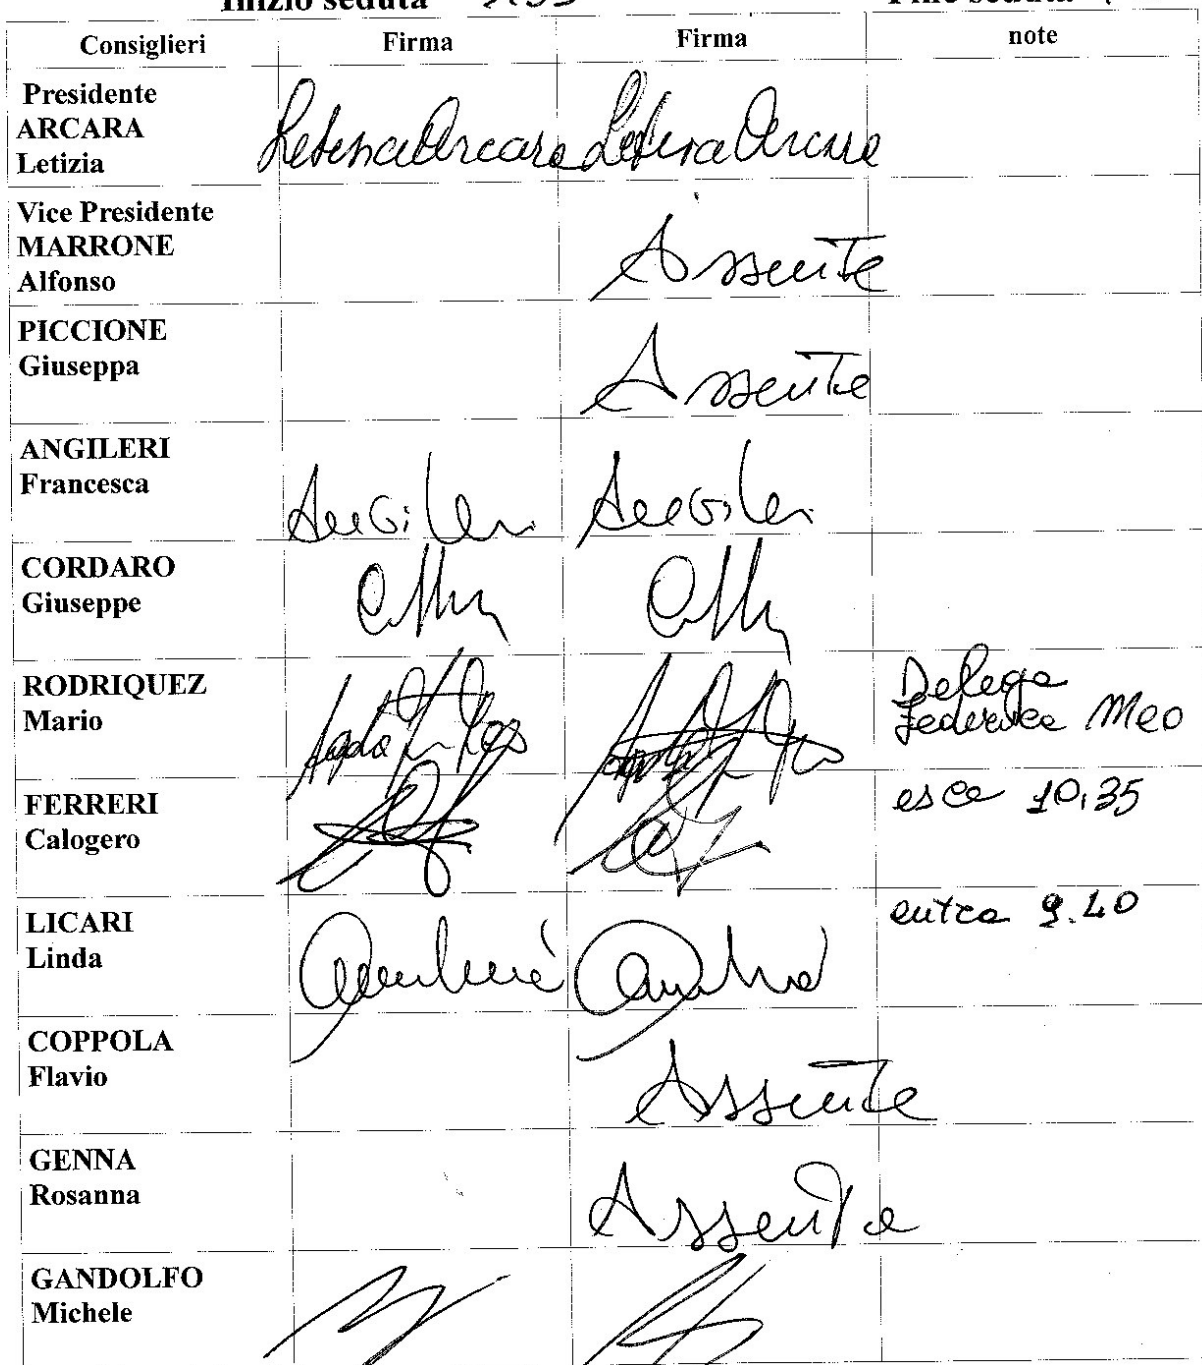 Inizio seduta Fine seduta
Consiglieri Firma Firma note
Presidente
ARCARA
Letizia
Letizia Arcara Letizia Arcara
Vice Presidente
MARRONE
Alfonso
Assente
PICCIONE
Giuseppa
Assente
ANGILERI
Francesca
Angileri Angileri
CORDARO
Giuseppe
RODRIQUEZ
Mario
Delega
Federica Meo
FERRERI
Calogero
esce 10,35
LICARI
Linda
entra 9.40
COPPOLA
Flavio
Assente
GENNA
Rosanna
Assente
GANDOLFO
Michele